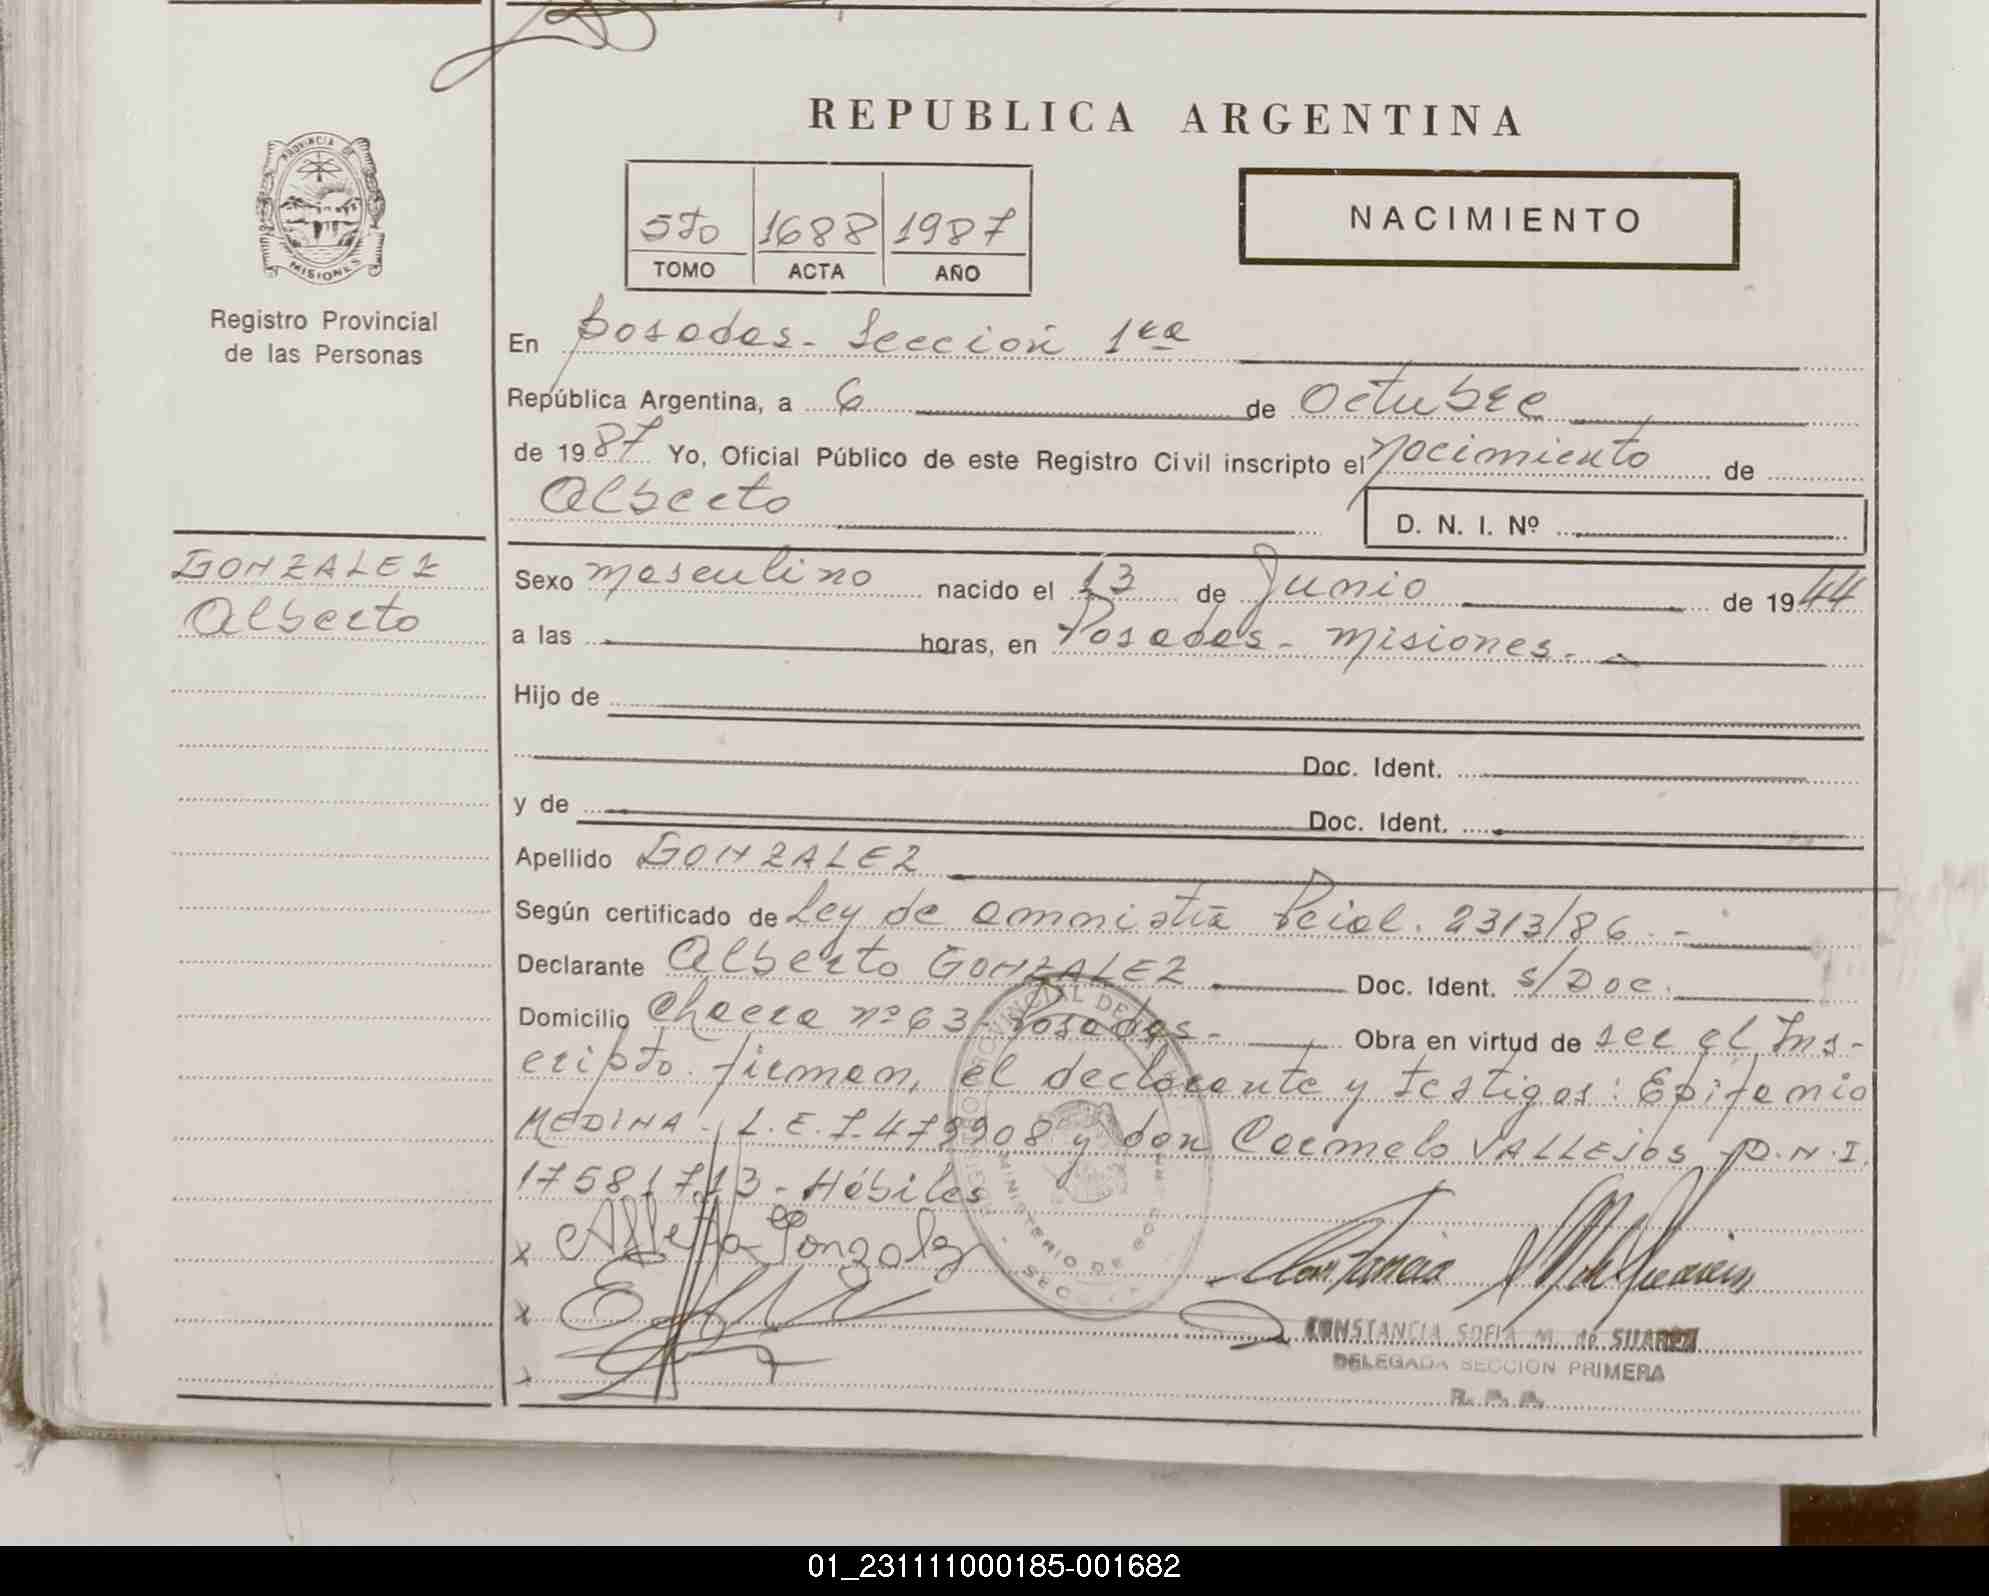 REPUBLICA ARGENTINA
PROVINCIA DE
MISIONES
Registro Provincial
de las Personas
5to 1688 1987
TOMO ACTA AÑO
NACIMIENTO
En Posadas - Sección 1ra
República Argentina, a 6 de Octubre
de 1987 Yo, Oficial Público de este Registro Civil inscripto el Nacimiento de
Alberto
D. N. I. Nº
GONZALEZ
Alberto
Sexo masculino nacido el 13 de Junio de 1944
a las horas, en Posadas - Misiones. -
Hijo de
Doc. Ident.
y de Doc. Ident.
Apellido GONZALEZ
Según certificado de Ley de amnistia Pcial. 2313/86. -
Declarante Alberto GONZALEZ Doc. Ident. s/Doc.
Domicilio Chacra nº 63 - Posadas - Obra en virtud de ser el Ins-
cripto. firman, el declarante y testigos: Epifanio
MEDINA - L.E. 7.479908 y don Carmelo VALLEJOS D.N.I.
17581713 - Hábiles
x Alberto Gonzalez
x
x
MINISTERIO DE
CONSTANCIA SOFIA M. de SUAREZ
DELEGADA SECCION PRIMERA
01_231111000185-001682